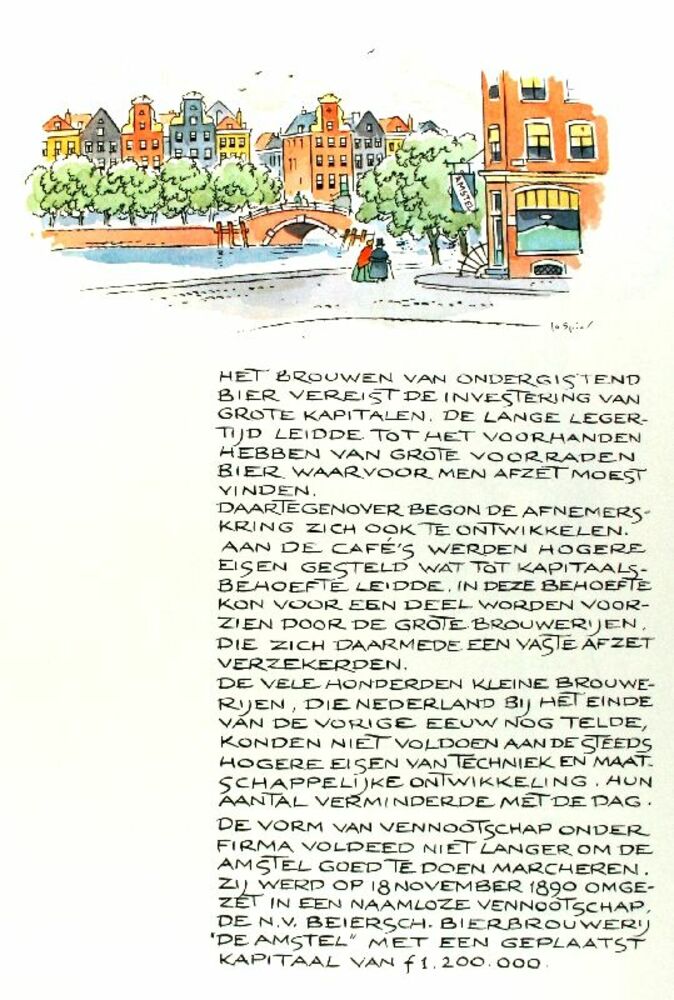 AMSTEL
Jo Spier
HET BROUWEN VAN ONDERGISTEND
BIER VEREIST DE INVESTERING VAN
GROTE KAPITALEN. DE LANGE LEGER-
TIJD LEIDDE TOT HET VOORHANDEN
HEBBEN VAN GROTE VOORRADEN
BIER WAARVOOR MEN AFZET MOEST
VINDEN.
DAARTEGENOVER BEGON DE AFNEMERS-
KRING ZICH OOK TE ONTWIKKELEN.
AAN DE CAFÉ'S WERDEN HOGERE
EISEN GESTELD WAT TOT KAPITAALS-
BEHOEFTE LEIDDE. IN DEZE BEHOEFTE
KON VOOR EEN DEEL WORDEN VOOR-
ZIEN DOOR DE GROTE BROUWERIJEN,
DIE ZICH DAARMEDE EEN VASTE AFZET
VERZEKERDEN.
DE VELE HONDERDEN KLEINE BROUWE-
RIJEN, DIE NEDERLAND BIJ HET EINDE
VAN DE VORIGE EEUW NOG TELDE,
KONDEN NIET VOLDOEN AAN DE STEEDS
HOGERE EISEN VAN TECHNIEK EN MAAT-
SCHAPPELIJKE ONTWIKKELING. HUN
AANTAL VERMINDERDE MET DE DAG.
DE VORM VAN VENNOOTSCHAP ONDER
FIRMA VOLDEED NIET LANGER OM DE
AMSTEL GOED TE DOEN MARCHEREN.
ZIJ WERD OP 18 NOVEMBER 1890 OMGE-
ZET IN EEN NAAMLOZE VENNOOTSCHAP,
DE N.V. BEIERSCH. BIERBROUWERIJ
"DE AMSTEL" MET EEN GEPLAATST
KAPITAAL VAN f 1.200.000.